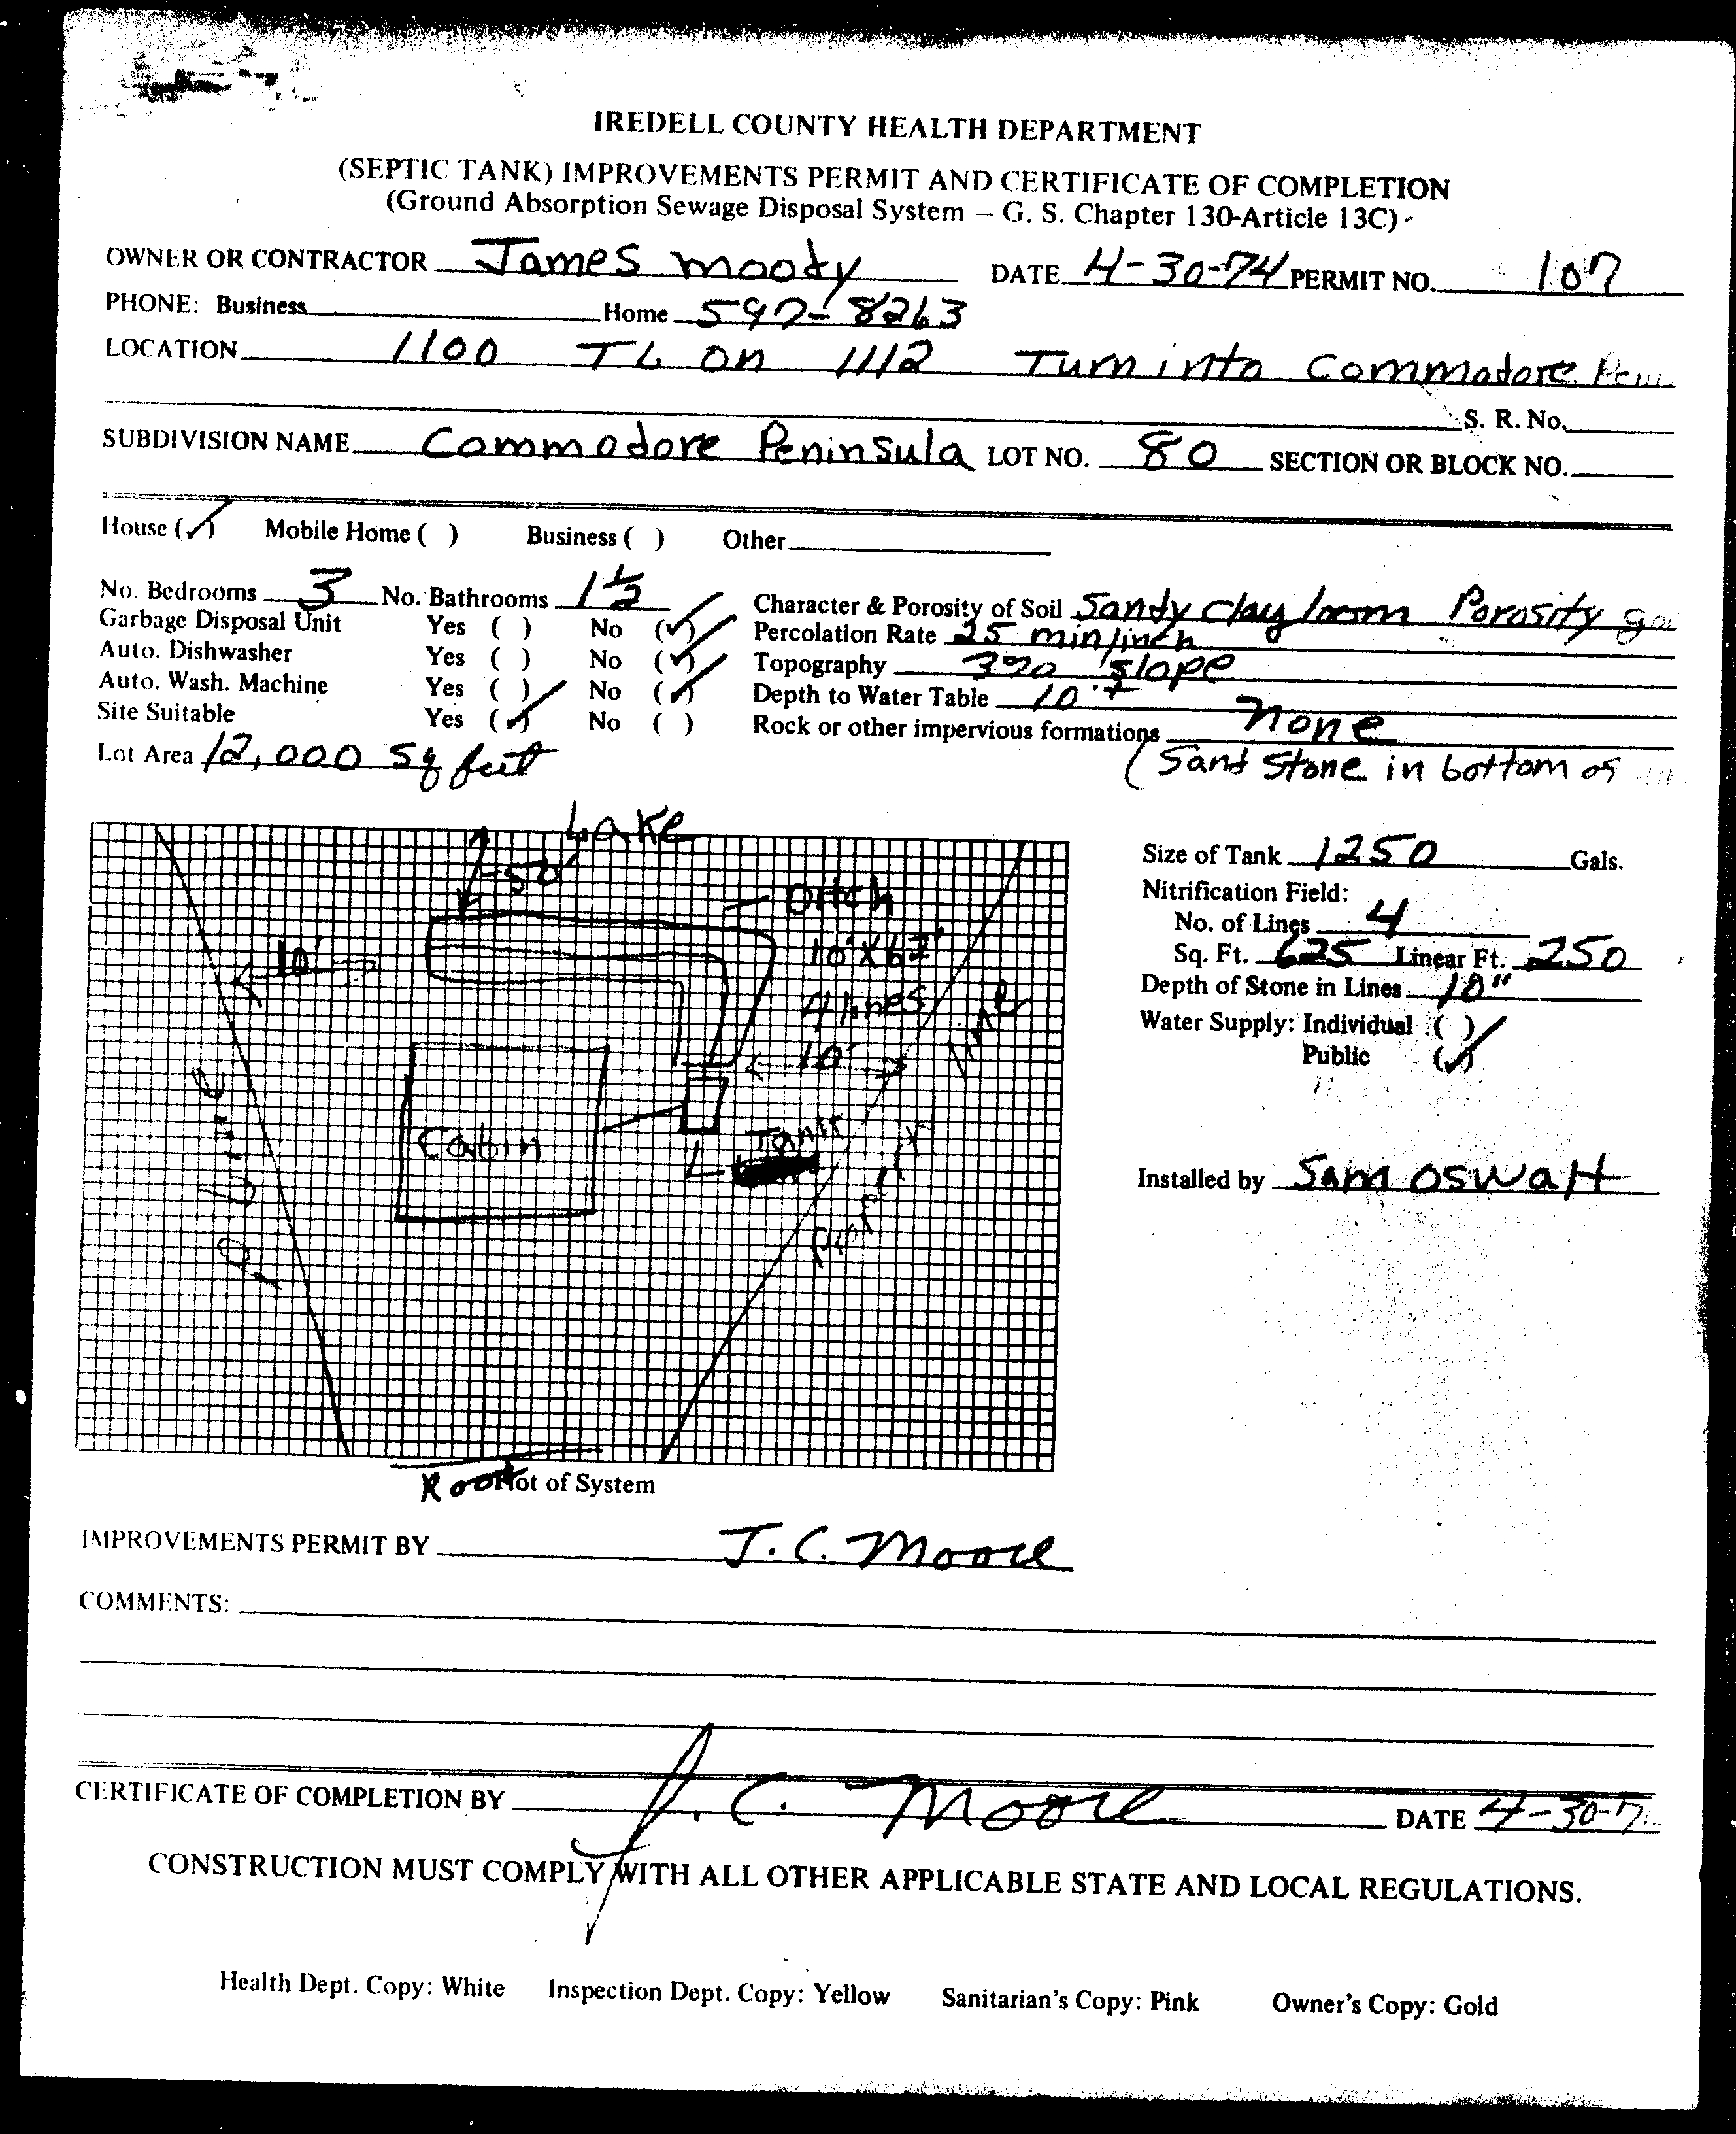 IREDELL COUNTY HEALTH DEPARTMENT
(SEPTIC TANK) IMPROVEMENTS PERMIT AND CERTIFICATE OF COMPLETION
(Ground Absorption Sewage Disposal System – G. S. Chapter 130-Article 13C)
OWNER OR CONTRACTOR James Moody DATE 4-30-74 PERMIT NO. 107
PHONE: Business Home 597-8263
LOCATION 1100 TL on 1112 Turn into Commodore
S. R. No.
SUBDIVISION NAME Commodore Peninsula LOT NO. 80 SECTION OR BLOCK NO.
House (✓) Mobile Home ( ) Business ( ) Other
No. Bedrooms 3 No. Bathrooms 1 1/2 Character & Porosity of Soil Sandy clay loam Porosity
Garbage Disposal Unit Yes ( ) No (✓) Percolation Rate 25 min/inch
Auto. Dishwasher Yes ( ) No (✓) Topography 3% slope
Auto. Wash. Machine Yes ( ) No (✓) Depth to Water Table 10'+
Site Suitable Yes (✓) No ( ) Rock or other impervious formations none
Lot Area 12,000 Sq feet (Sand Stone in bottom of
Lake
50'
Ditch
10'
10'X62'
4 lines
10'
Line
Cabin
Tank
P/Line
Property
Size of Tank 1250 Gals.
Nitrification Field:
No. of Lines 4
Sq. Ft. 625 Linear Ft. 250
Depth of Stone in Lines 10"
Water Supply: Individual ( )
Public (✓)
Installed by Sam Oswalt
Plot of System
IMPROVEMENTS PERMIT BY J. C. Moore
COMMENTS:
CERTIFICATE OF COMPLETION BY J. C. Moore DATE 4-30-7
CONSTRUCTION MUST COMPLY WITH ALL OTHER APPLICABLE STATE AND LOCAL REGULATIONS.
Health Dept. Copy: White Inspection Dept. Copy: Yellow Sanitarian's Copy: Pink Owner's Copy: Gold